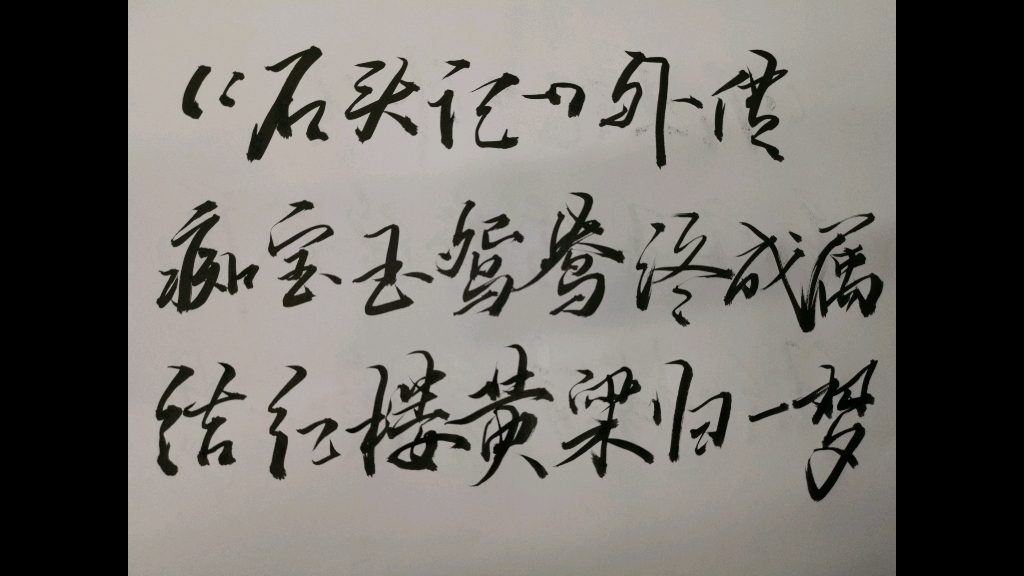 《石头记》外传
痴宝玉鸳鸯终成属
结红楼黄梁归一梦